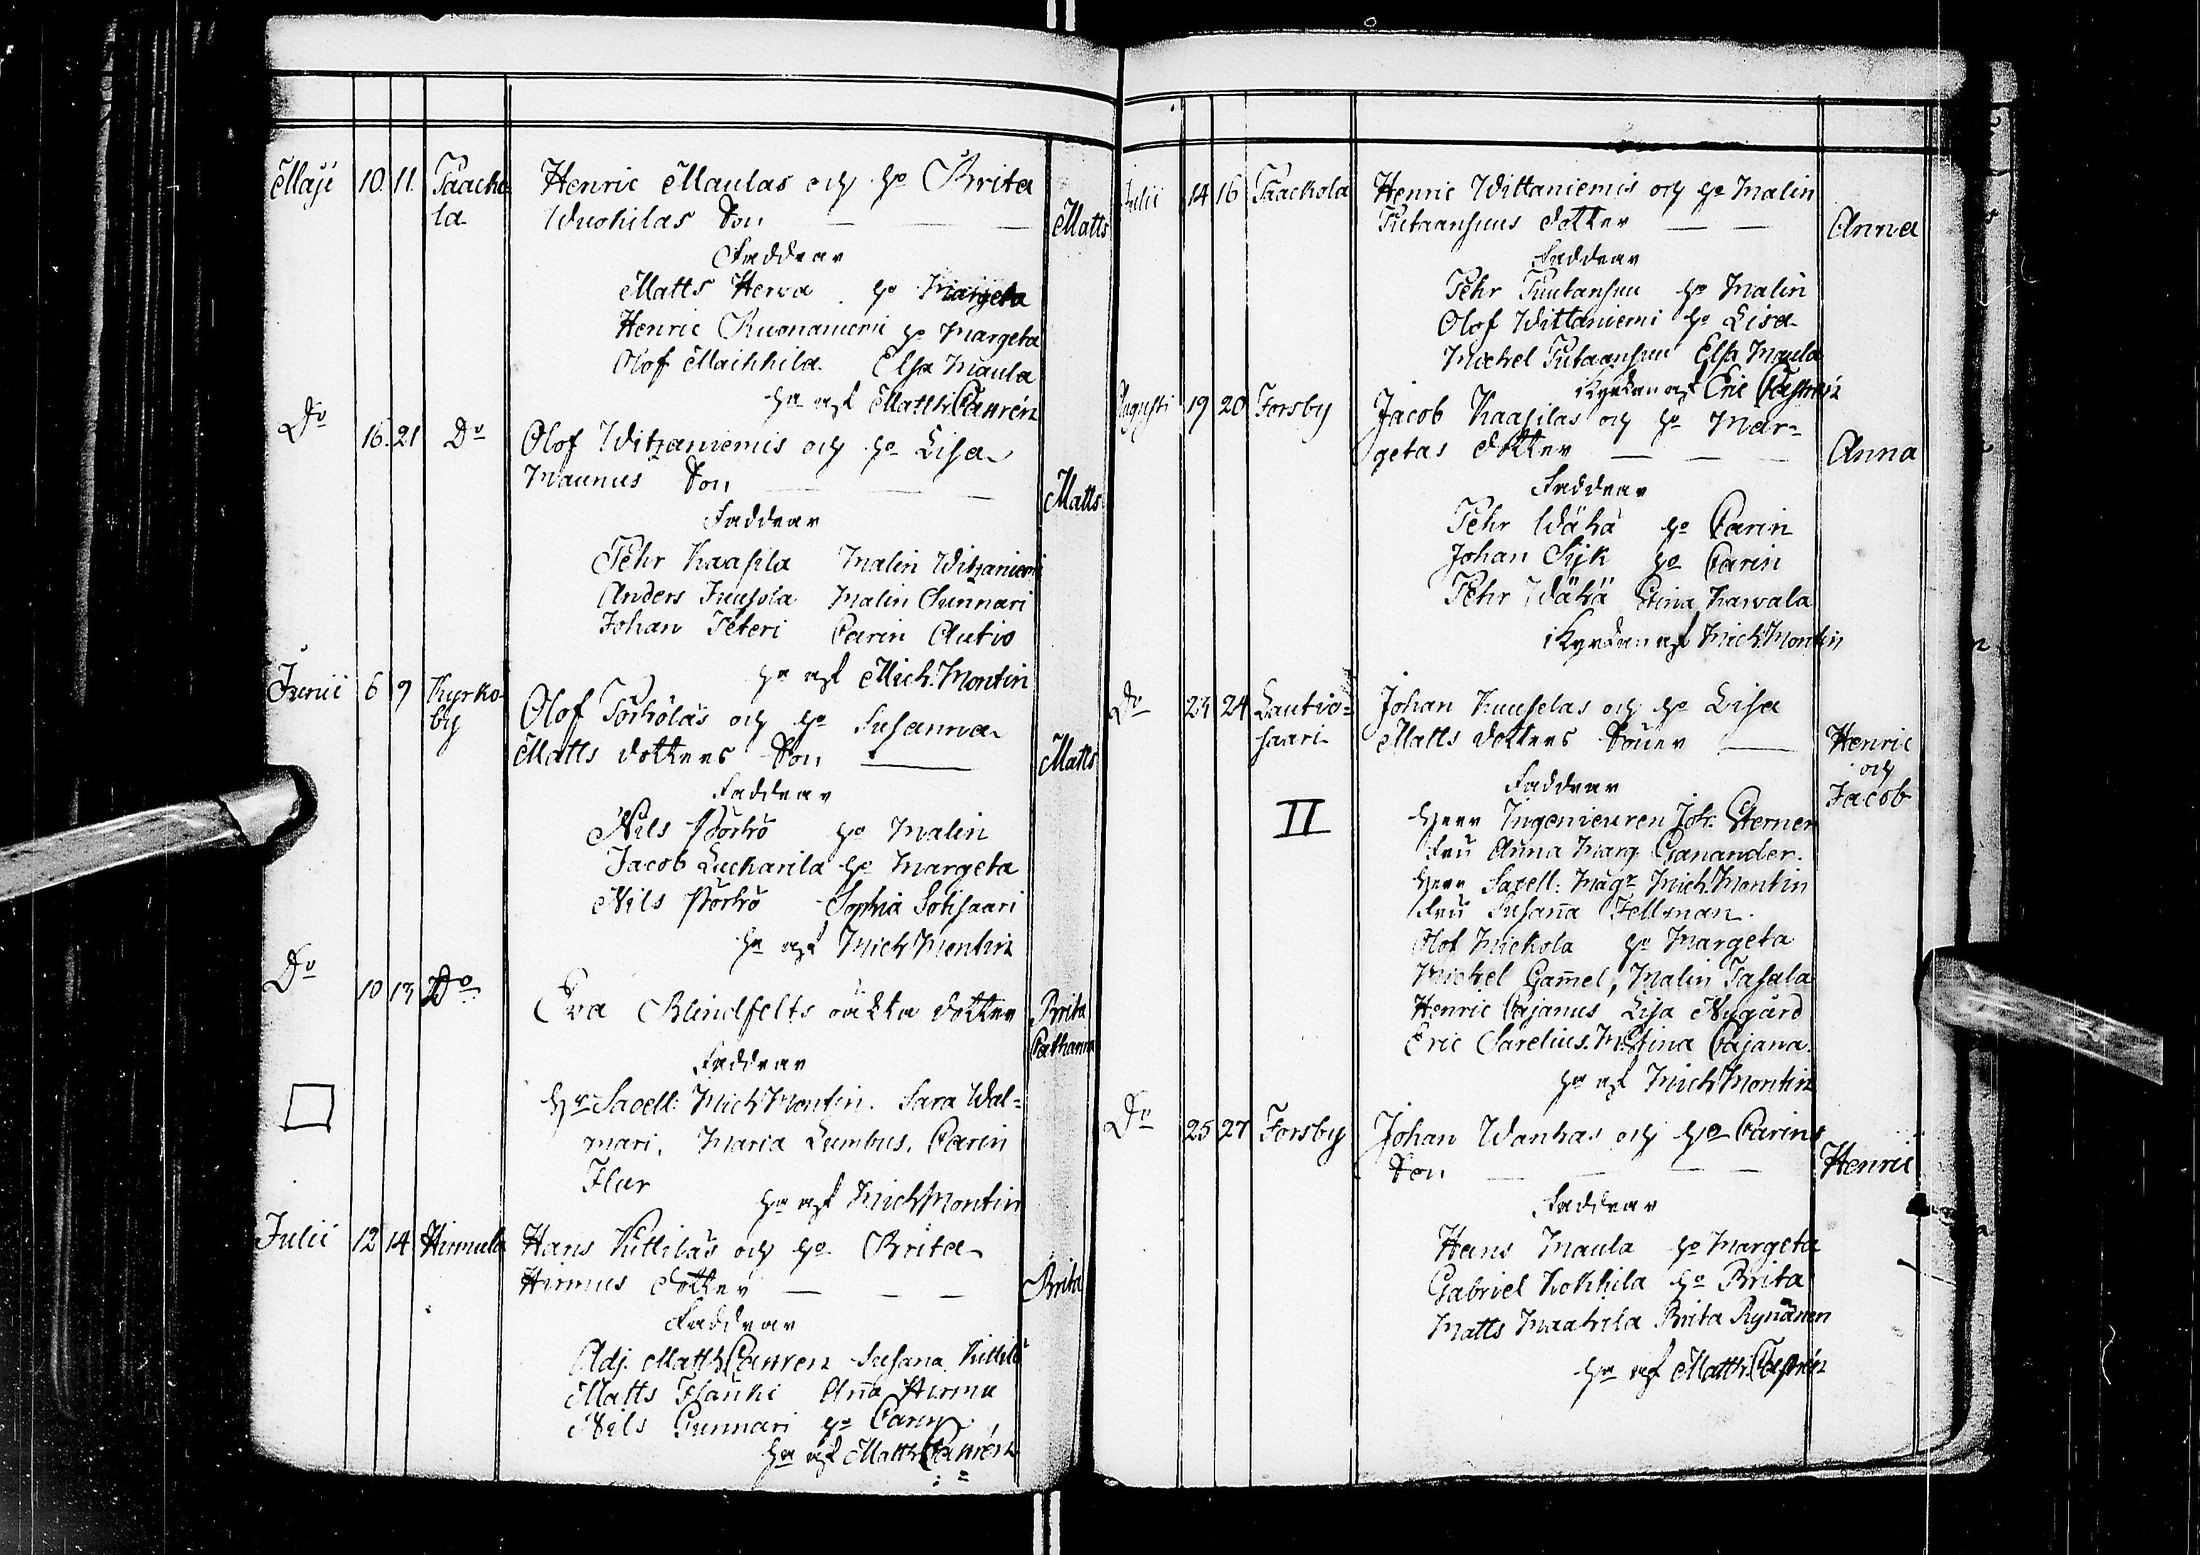 Maji 10 11. Paacko
la
Henric Maulas och h:o Brita
Wuohilas Son Matts
Faddrar
Matts Herva h:o Margeta
Henric Ruonaniemi h:o Margeta
Olof Maikkila. Elsa Maula
Matth. Castrén
D:o 16. 21 D:o Olof Witzaniemis och h:o Lisa
Maunus Son Matts
Faddrar
Pehr Kaasila Malin Witzaniemi
Anders Juusola Malin Gunnari
Johan Peteri Carin Autio
Mich. Montin
Junii 6 9 Kyrko
by
Olof Pörhöläs och h:o Susanna
Matts dotters Son Matts
Faddrar
Nils Pörhö h:o Malin
Jacob Luckarila h:o Margeta
Nils Pörhö Sophia Sotisaari
Mich Montin
D:o 10 13 D:o
Eva Blindfelts oäkta dotter Brita
Catharina
Faddrar
H:r Sacell: Mich Montin. Sara Wal=
mari, Maria Lumbus, Carin
Flur
Mich Montin
Julii 12 14 Hirmula Hans Kittiläs och h:o Brita
Hirmus dotter Brita
Faddrar
Adj. Matth Castren Susana Kittilä
Matts Hauki Aña Hirmu
Nils Gunnari h:o Carin
Matth Castrén
Julii 14 16 Paackola Henric Wittaniemis och h:o Malin
Putaansuus dotter Anna
Faddrar
Pehr Putansuu h:o Malin
Olof Wittaniemi h:o Lisa
Michel Putaansuu Elsa Maula
i Kyrckan af Eric Castrén
Augusti 19 20 Forsby Jacob Kaasilas och h:o Mar=
getas dotter Anna
Faddrar
Pehr Wähä h:o Carin
Johan Sijk h:o Carin
Pehr Wähä Stina Karvala
i Kyrckan af Mich. Montin
D:o 23 24 Lautio=
saari
Johan Kuuselas och h:o Lisa
Matts dotters Söner Henric
och
Jacob
Faddrar
II
Herr Ingenieuren Joh: Sterner
Fru Anna Marg. Ganander.
Herr Sacell: Mag:r Mich. Montin
Fru Susaña Fellman.
Olof Mickola h:o Margeta
Michel Gamel, Malin Tasala
Henric Cajanus Lisa Nygård
Eric Sarelius. M. Stina Cajana.
Mich Montin
D:o 25 27 Forsby Johan Wanhas och h:o Carins
Son Henric
Faddrar
Hans Maula h:o Margeta
Gabriel Kokkila h:o Brita
Matts Maahila Brita Rynänen
Matth. Castrén